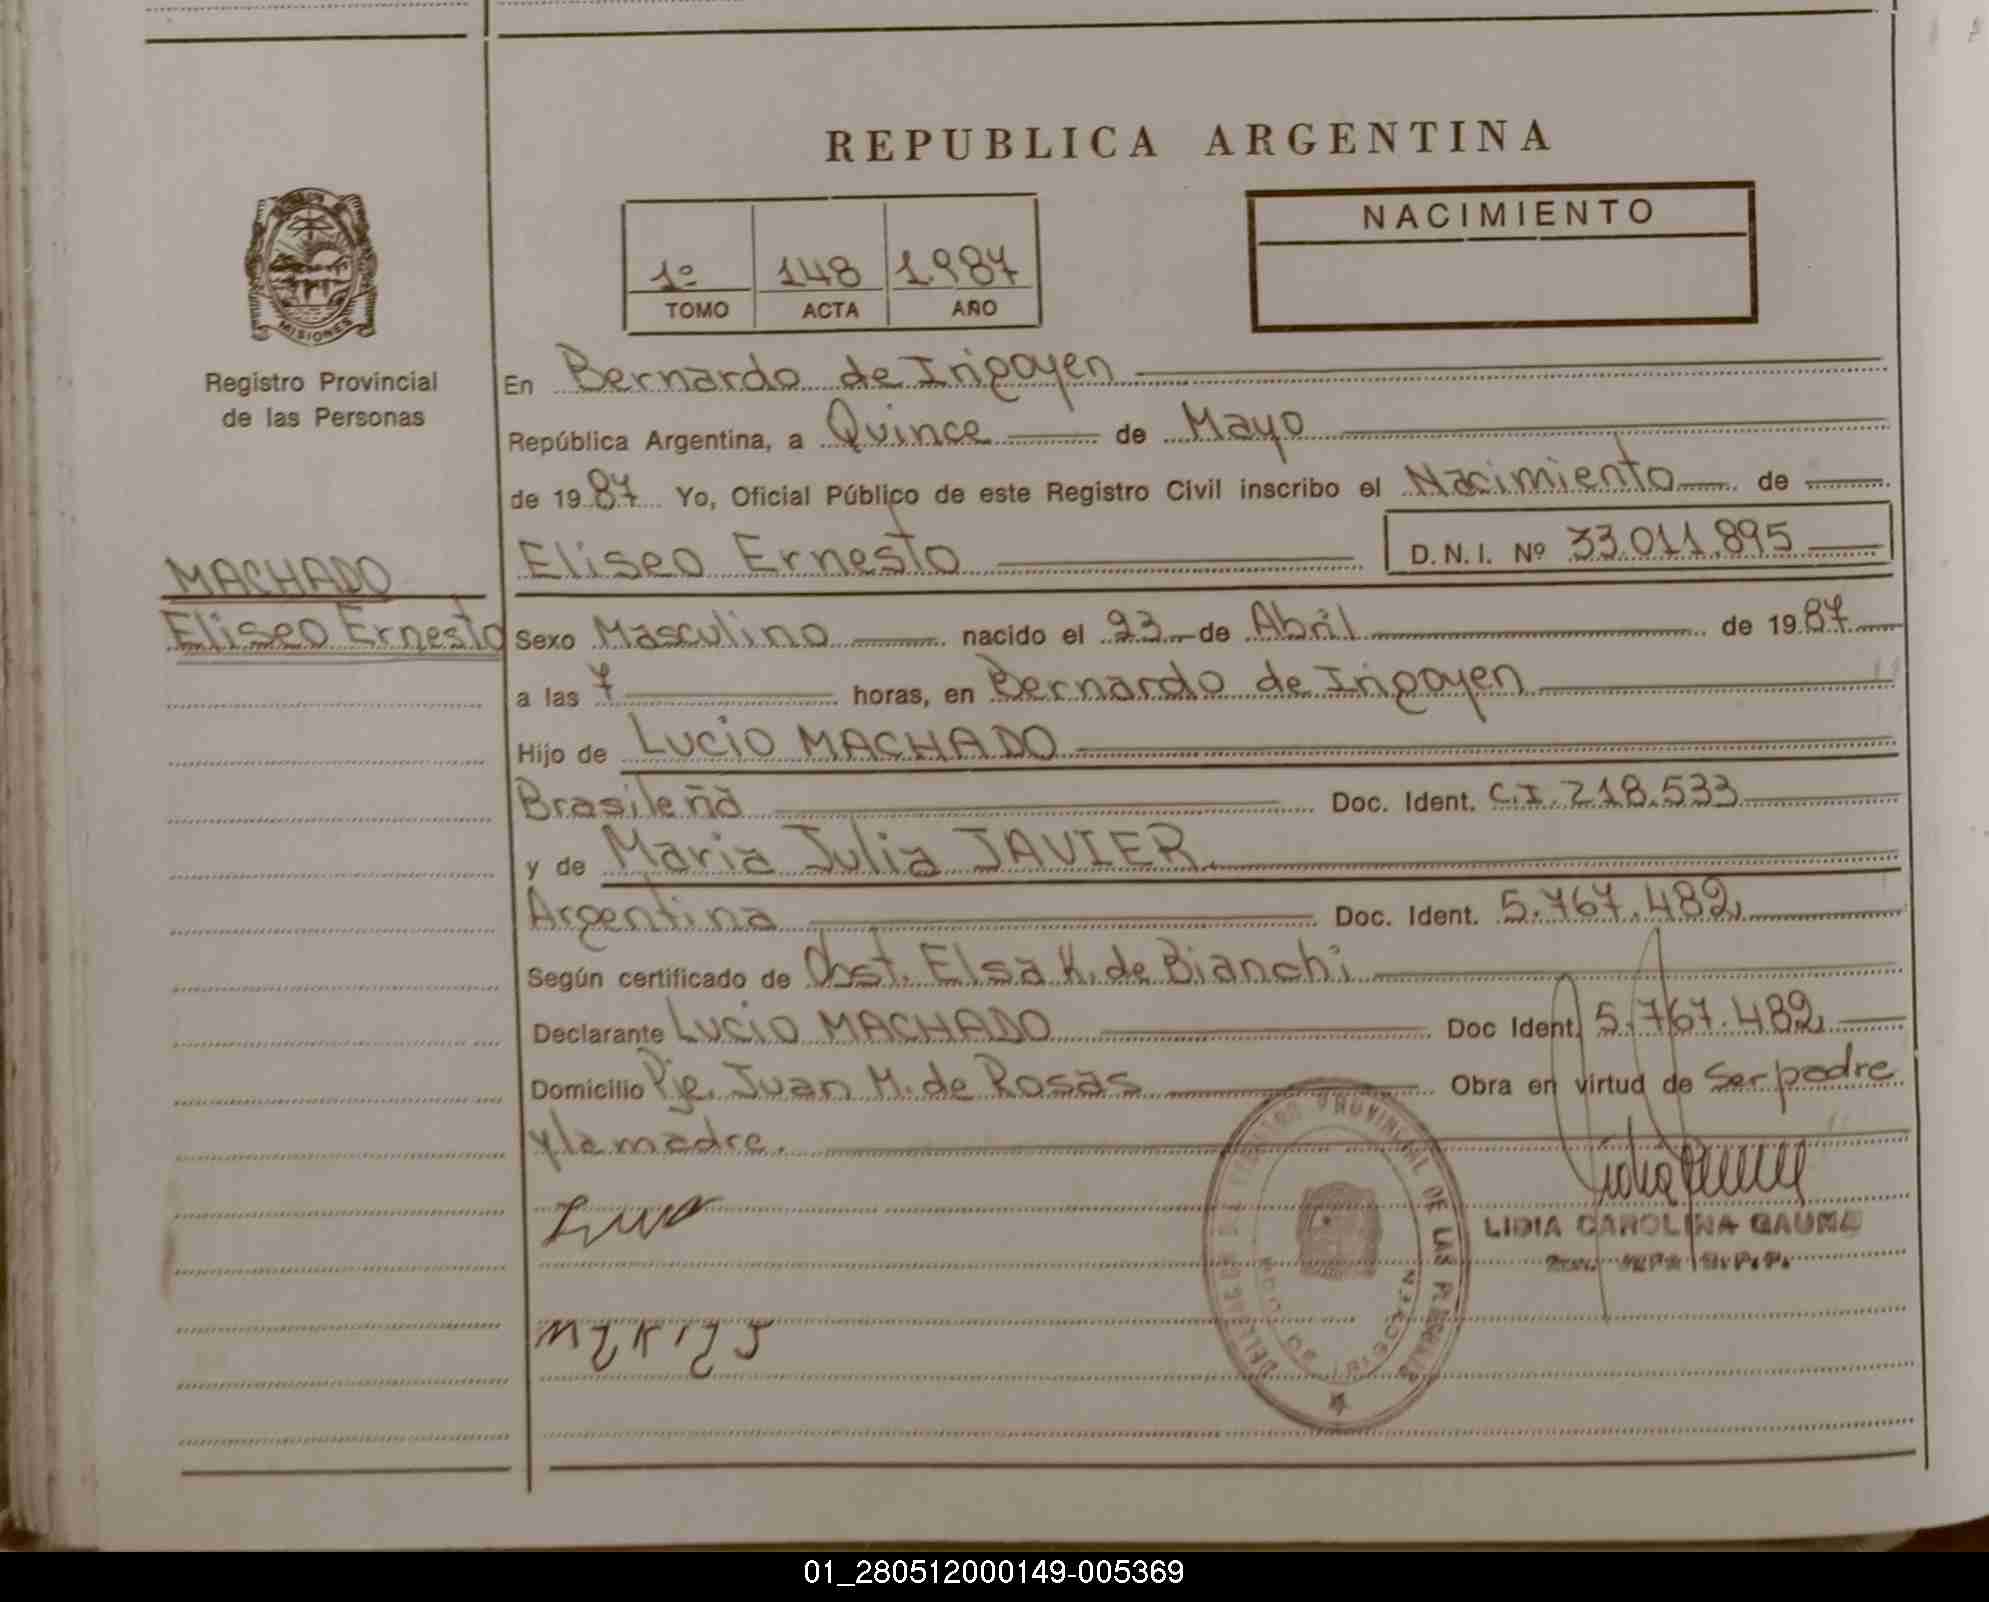 REPUBLICA ARGENTINA
NACIMIENTO
1º 148 1.987
TOMO ACTA AÑO
MISIONES
Registro Provincial
de las Personas
En Bernardo de Irigoyen
República Argentina, a Quince de Mayo
de 19 87 Yo, Oficial Público de este Registro Civil inscribo el Nacimiento de
MACHADO
Eliseo Ernesto
Eliseo Ernesto D.N.I. Nº 33.011.895
Sexo Masculino nacido el 23 de Abril de 19 87
a las 7 horas, en Bernardo de Irigoyen
Hijo de Lucio MACHADO
Brasileña Doc. Ident. C.I. 218.533
y de Maria Julia JAVIER
Argentina Doc. Ident. 5.767.482
Según certificado de Obst. Elsa K. de Bianchi
Declarante Lucio MACHADO Doc Ident. 5.767.482
Domicilio Pje. Juan M. de Rosas Obra en virtud de Ser padre
y la madre.
LIDIA CAROLINA GAUNA
REGISTRO PROVINCIAL DE LAS PERSONAS
01_280512000149-005369